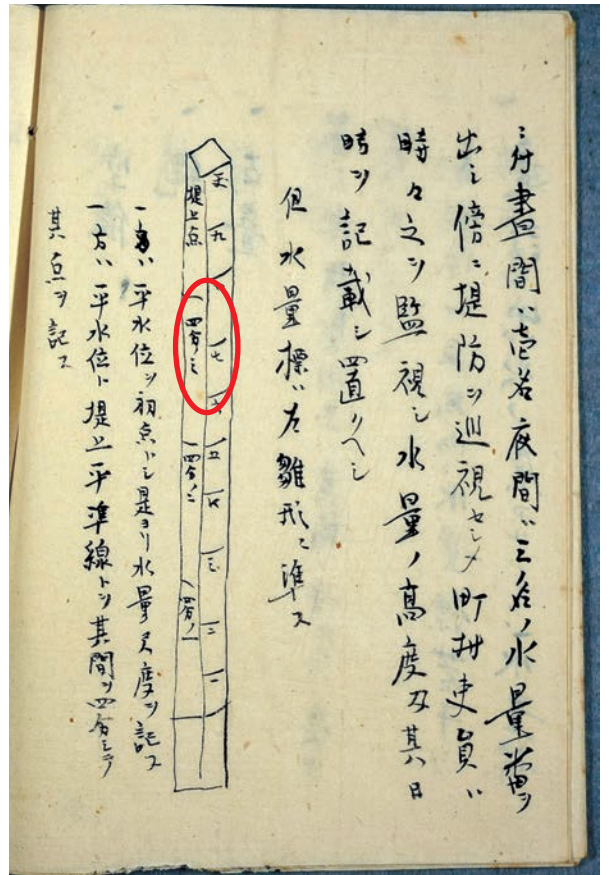 ニ付晝間ハ壱名夜間ハ三名ノ水量番ヲ
出シ傍ニ堤防ヲ巡視セシメ町村吏員ハ
時々之ヲ監視シ水量ノ高度及其日
時ヲ記載シ置クヘシ
但水量標ハ左雛形ニ準ス
九
七
六
五
四
三
二
一
堤上点
四分ノ三
四分ノ二
四分ノ一
一方ハ平水位ヲ初点トシ是ヨリ水量尺度ヲ記ス
一方ハ平水位ト堤上平準線トヲ其間ヲ四分シテ
其点ヲ記ス